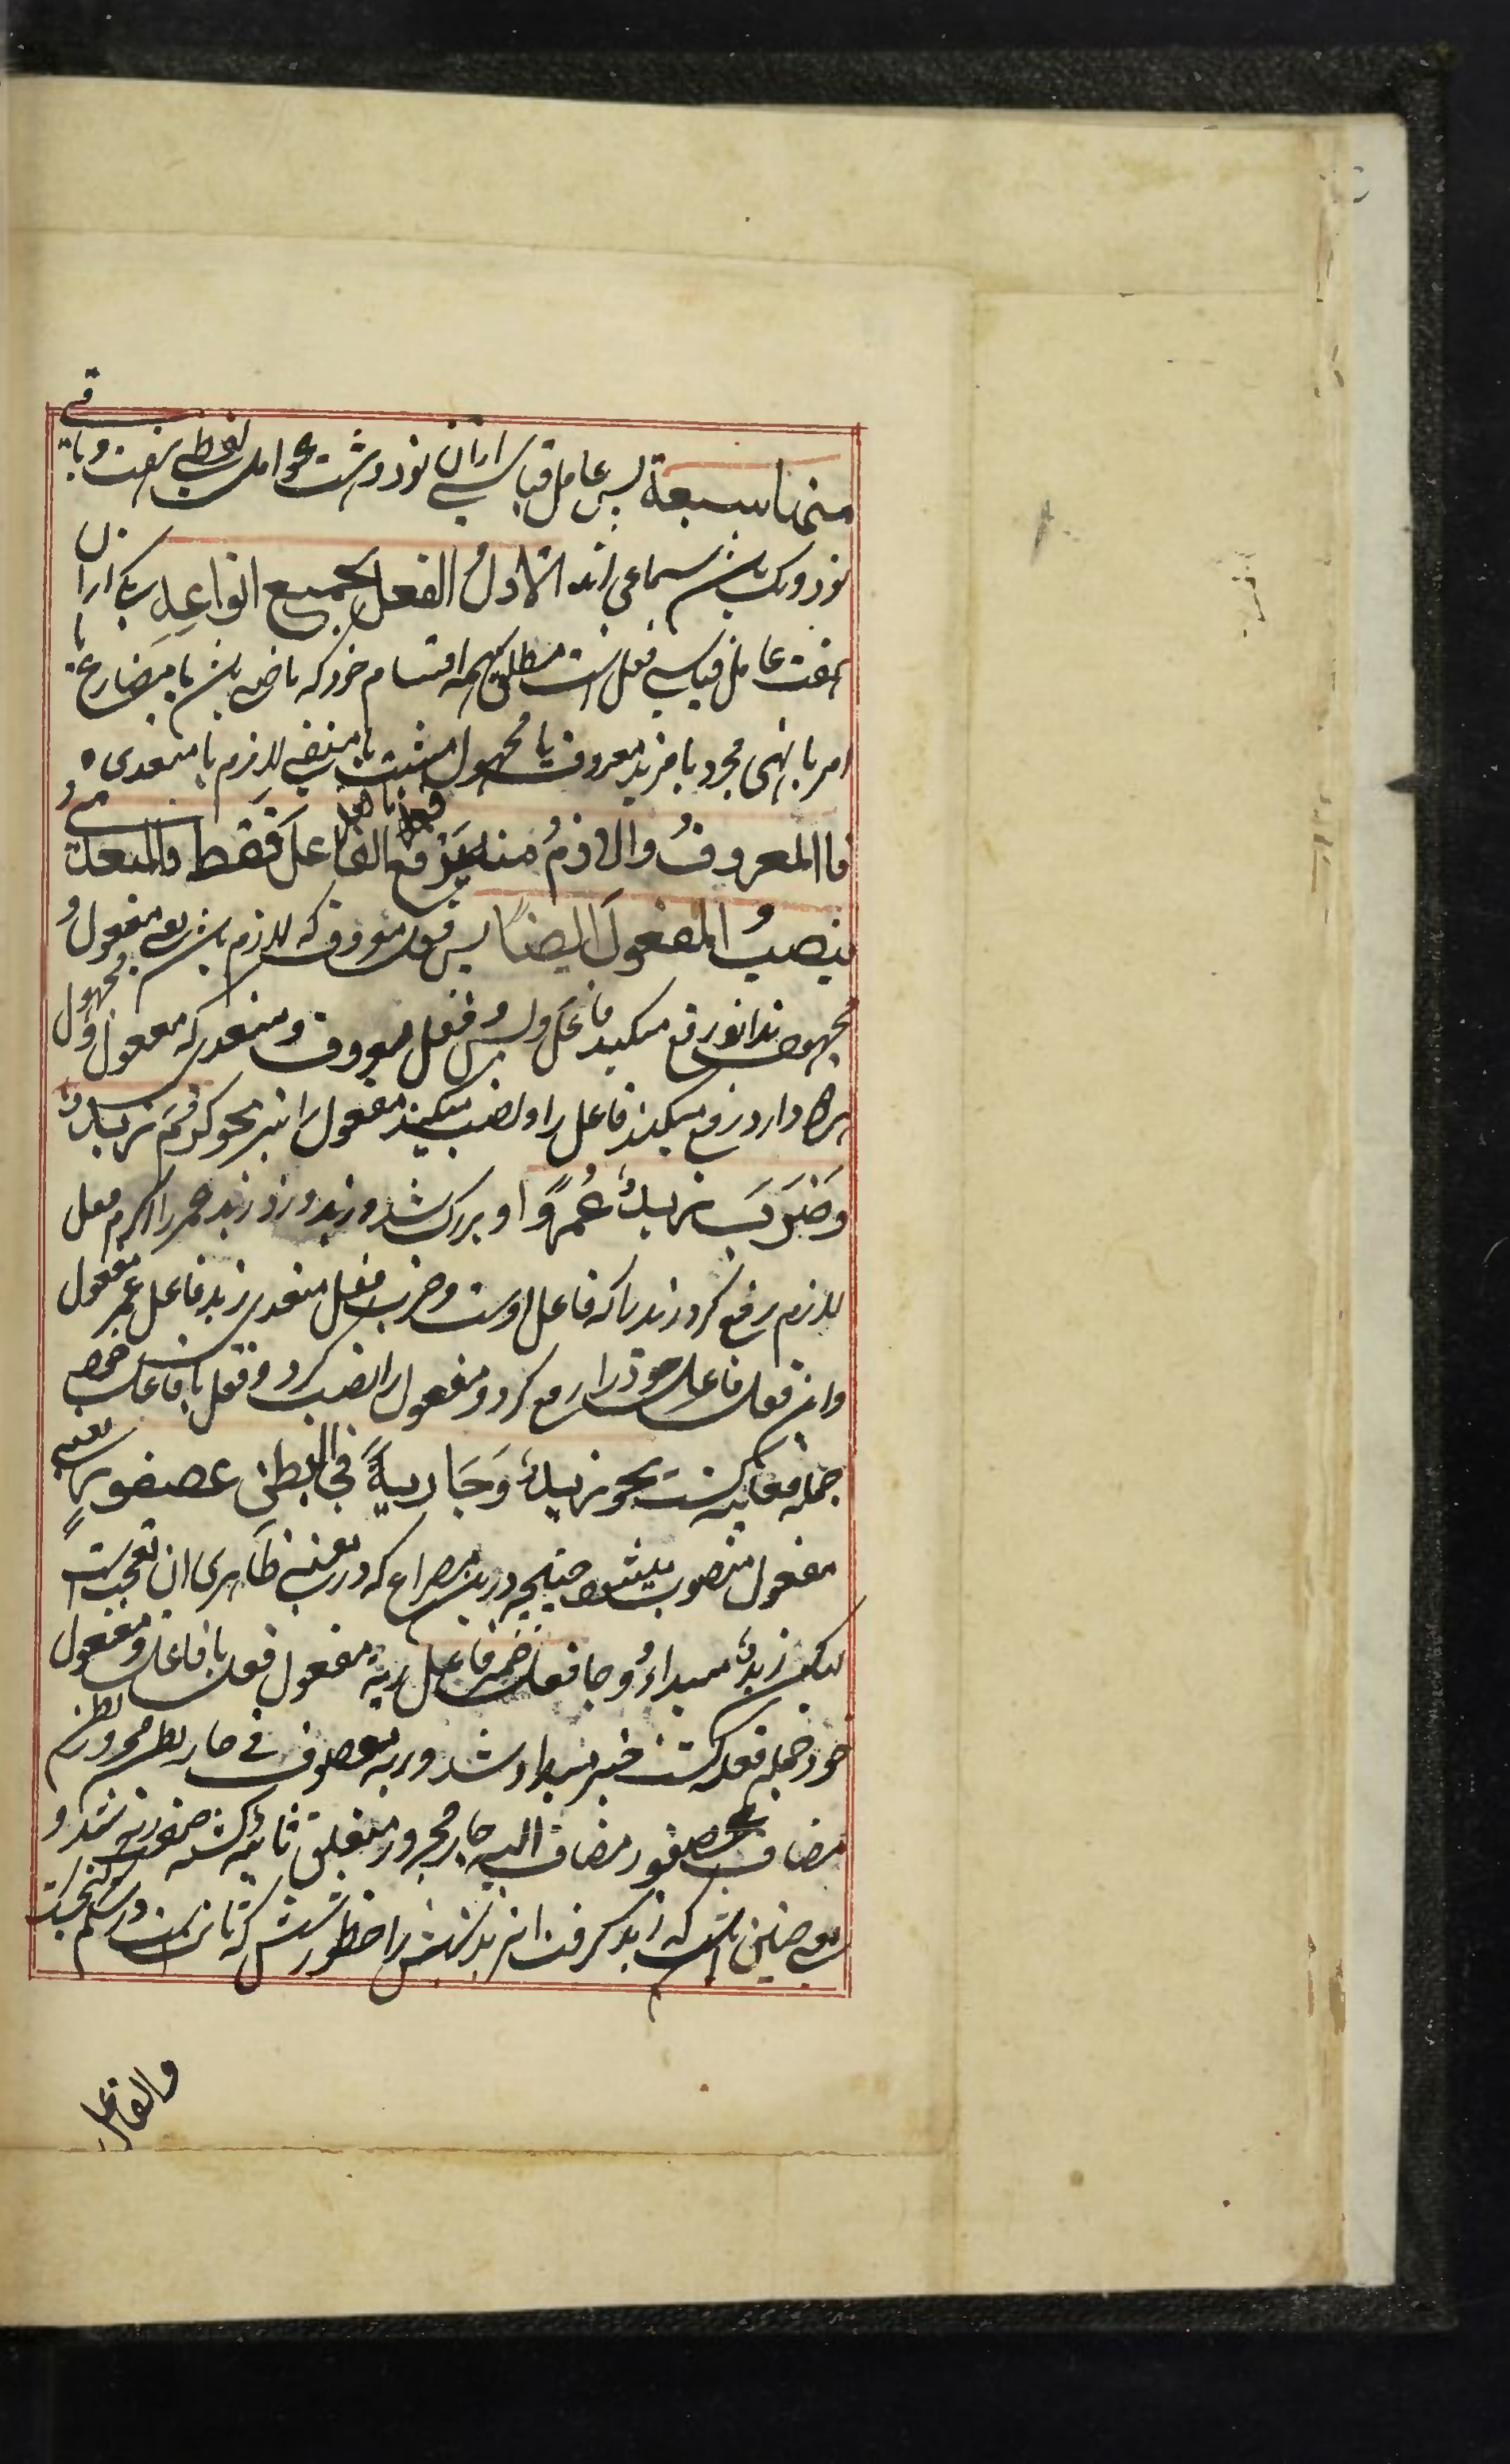 منها سبعة پس عامل قیاسی ازان نود و هشت عوامل لفظی هفت و باقی
نود و یک باشن سماعی اند الاول الفعل بجمیع انواعه یکی ازان
هفت عامل قیاسی فعل است مطلق بهمه اقسام خود که ماضی باش یا مضارع یا
امر یا نهی مجرد یا مزید معروف یا مجهول مثبت یا منفی لازم یا متعدی ه
فا المعروفُ والازمُ منه یرفع الفاعلَ فقط والمتعدی
ینصبُ المفعولَ ایضاً پس فعل معروف که لازم باش یعنی مفعول و
مجهول ندارد رفع میکند فاعل و پس فعل معروف و متعدی که مفعول و مجهول
دارد رفع میکند فاعل را و نصب میکند مفعول را نیز نحو کرُمَ زیدٌ
وضَرَبَ زیدٌ عُمرًوا و بزرک شد زید و زد زید عمر را کرم فعل
لازم رفع کرد زید را که فاعل اوست و ضرب فعل متعدی زید فاعل عمر مفعول
واین فعل فاعل خود را رفع کرد و مفعول را نصب کرد و فعل با فاعل خود
جمله فعلیه کشت نحو زیدٌ وَجَا ریةً فی البطن عصفورٍ یعنی
مفعول منصوب میشود چنانچه درین مصراع که در معنی ظاهری ان تعجب است
لیکن زیدٌ مبتداءٌ وجا فعل ضمیر فاعل ریة مفعول فعل با فاعل و مفعول
خود جمله فعلیه کشت خبر مبتدا و شد وریه موصوف فی جار بطن مجرور بطن
مضاف عصفور مضاف الیه جار مجرور متعلق ثابتة کشته صفت ریه شد و
معنی چنین باشد که زید کرفت
والفاعل